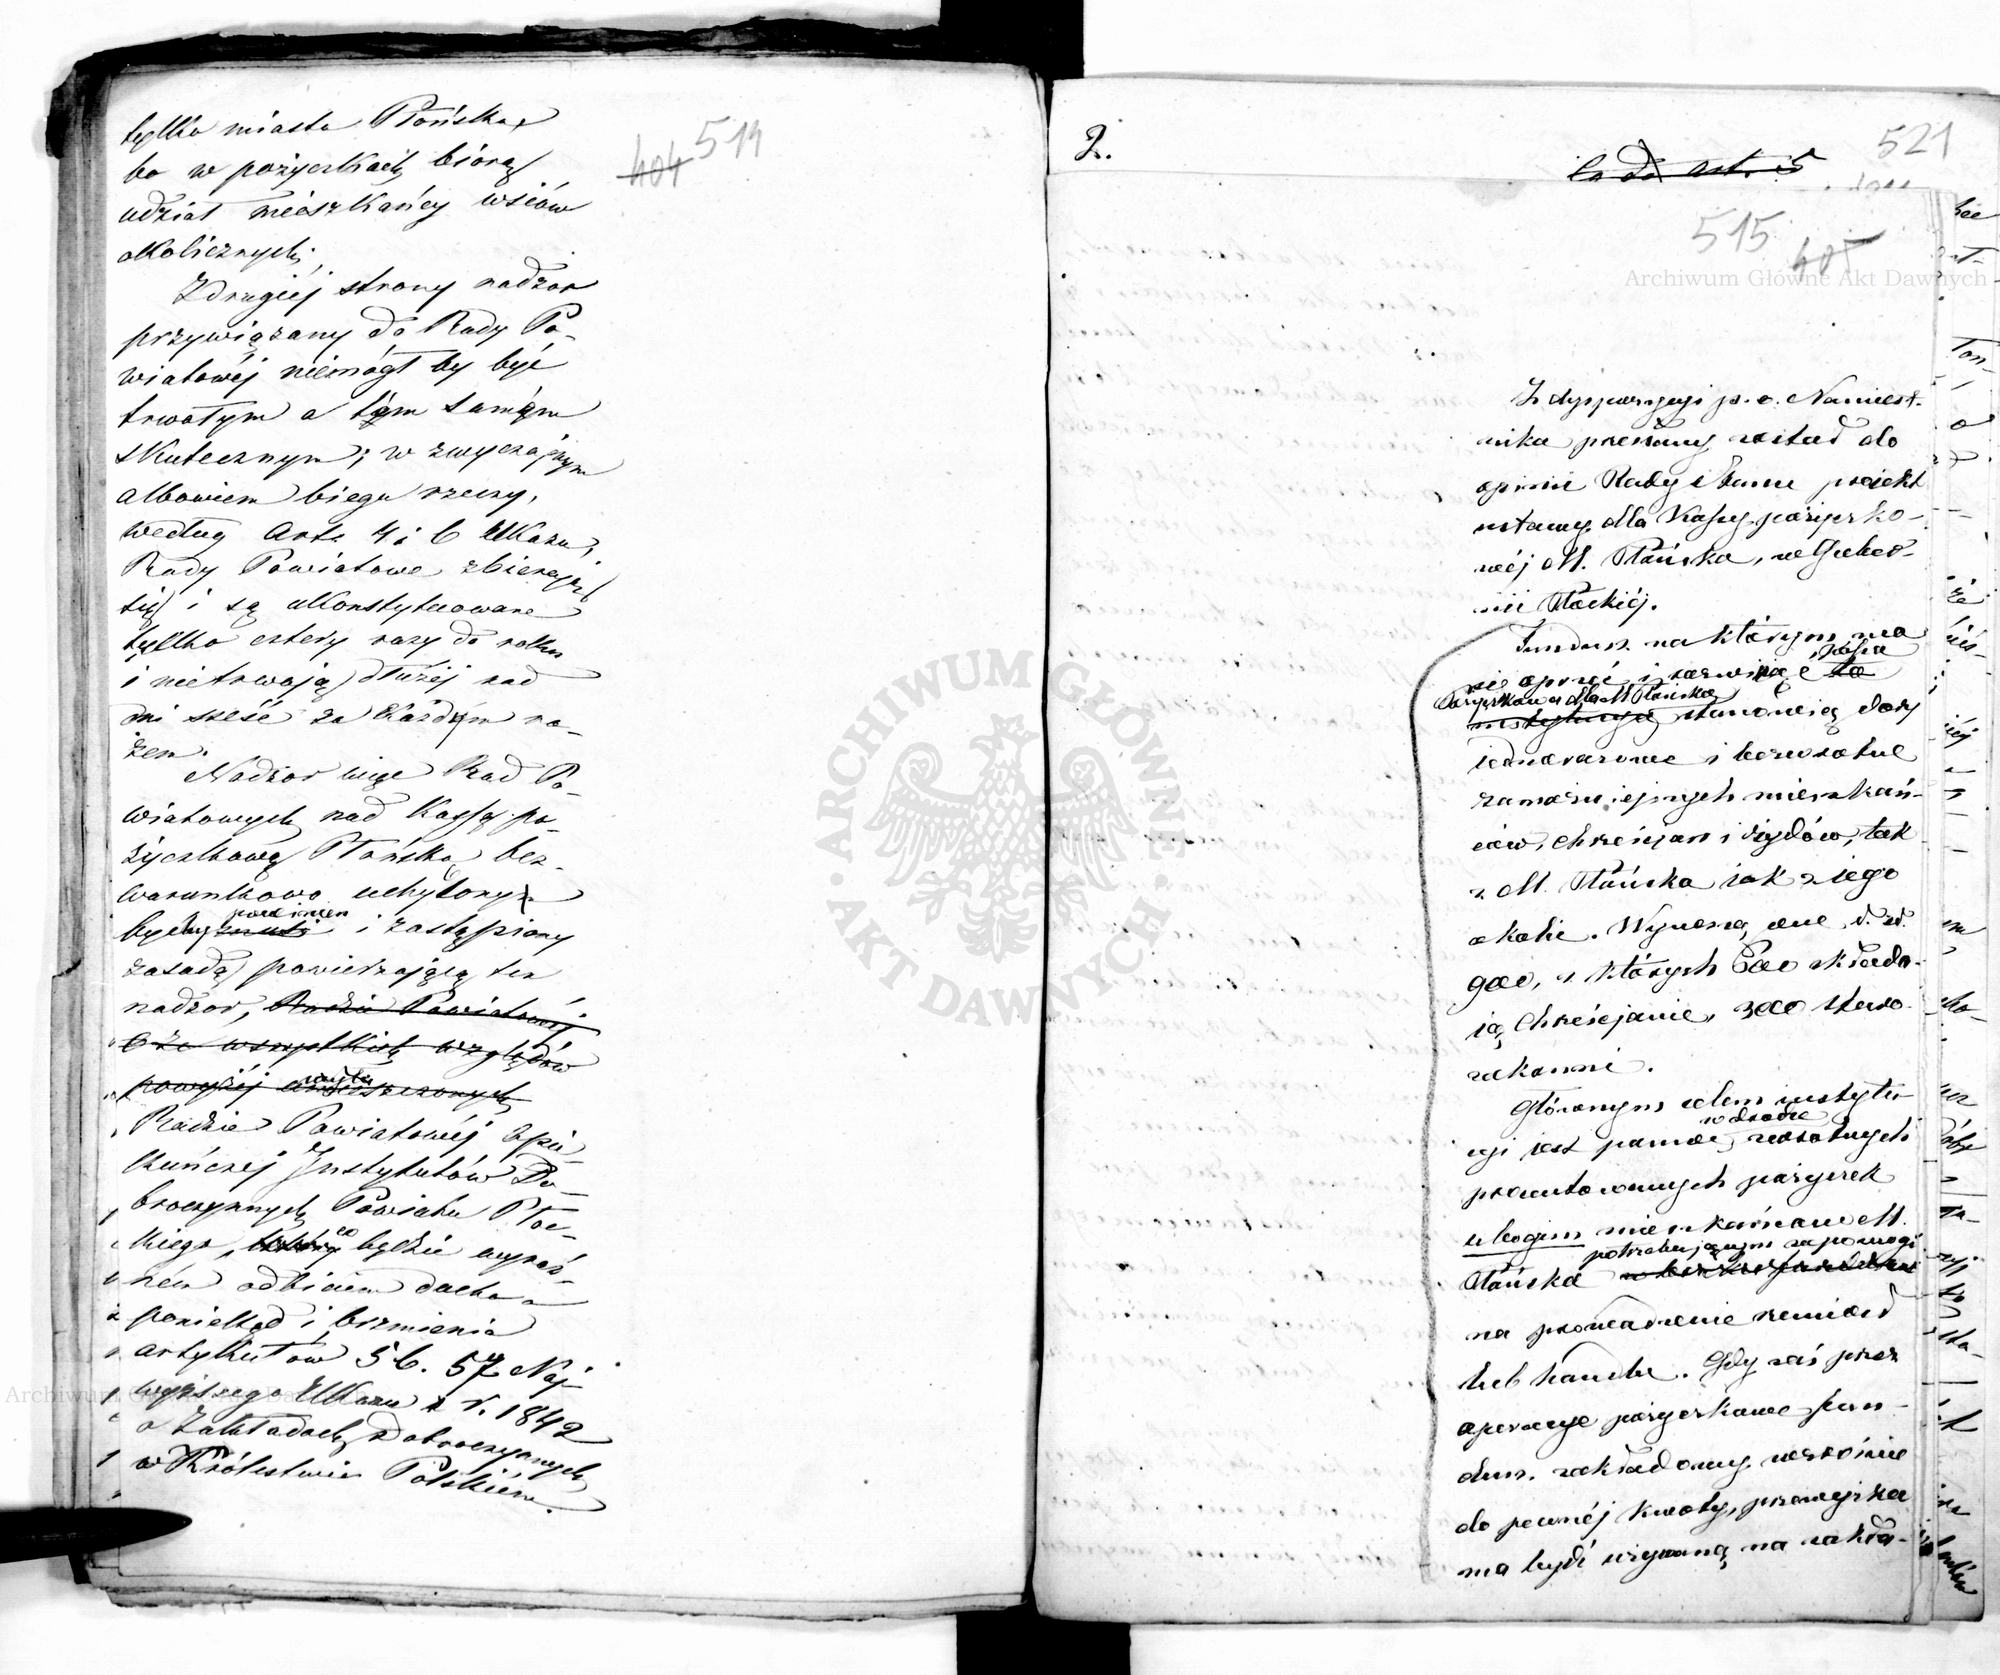 tylko miasta Płońska,
bo w pożyczkach biorą
udział mieszkańcy wsiów
okolicznych.
Z drugiéj strony nadzór
przywiązany do Rady Po-
wiatowéj niemógł by być
trwałym a tém samém
skutecznym; w zwyczajnym
albowiem biegu rzeczy,
według Art. 4 i 6 Ukazu,
Rady Powiatowe zbierają
się i są ukonstytuowane
tylko cztery razy do roku
i nietrwają dłużéj nad
dni sześć za każdym ra-
zem.
Nadzór więc Rad Po-
wiatowych nad Kassą po-
życzkową Płońską bez-
warunkowo uchylony
powinien
być i zastąpiony
zasadą powierzającą ten
nadzór, Radzie Powiatowéj
o ze wszystkich względów
powyżéj
Radzie Powiatowéj Opie-
kuńczéj Instytutów Do-
broczynnych Powiatu Płoc-
kiego, co będzie wyraź-
ném odbiciem ducha
poniekąd i brzmienia
artykułów 56. 57 Naj-
wyższego Ukazu z r. 1842
o Zakładach Dobroczynnych
w Królestwie Polskiém.
404 519
2.
521
515 405
Archiwum Główne Akt Dawnych
Z dyspozycyi p. o. Namiest-
nika przesłany został do
opinii Rady Stanu projekt
ustawy dla Kassy pożyczko-
wéj M. Płońska, w Guber-
nii Płockiéj.
Fundusz na którym ma
kassa
się oprzéć i rozwinąć ta
Pożyczkowa dla M. Płońska
instytucya stanowią dary
jednorazowe i bezzwrotne
zamożniejszych mieszkań-
ców, chrześcjan i żydów, tak
z M. Płońska jak z jego
okolic. Wynoszą one d. zł.
900, z których 600 składa-
ją Chrześcjanie, 300 staro-
zakonni.
Głównym celem instytu-
w drodze
cyi jest pomoc, zwrotnych
procentowanych pożyczek
ubogim mieszkańcom M.
potrzebującym zapomogi
Płońska
na prowadzenie rzemiosł
lub handlu. Gdy zaś przez
operacye pożyczkowe fun-
dusz zakładowy wzrośnie
do pewnéj kwoty, przewyżka
ma być używaną na zakła-
ARCHIWUM GŁÓWNE
AKT DAWNYCH
Archiwum Główne Akt Dawnych